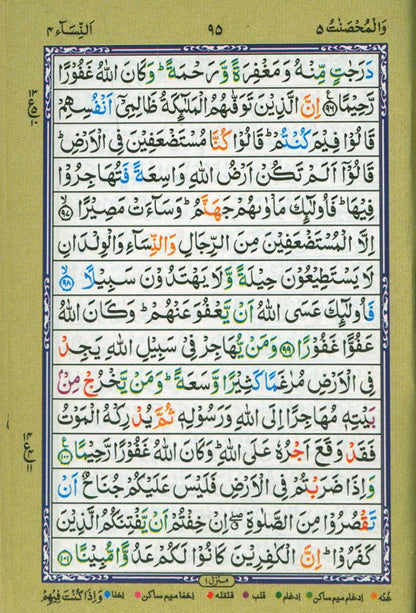 وَالْمُحْصَنٰتُ ٥
٩٥
اَلنِّسَآء ٤
دَرَجٰتٍ مِّنْهُ وَمَغْفِرَةً وَّرَحْمَةً ؕ وَكَانَ اللّٰهُ غَفُوْرًا
رَّحِيْمًا ﴿٩٦﴾ اِنَّ الَّذِيْنَ تَوَفّٰىهُمُ الْمَلٰٓئِكَةُ ظَالِمِيْٓ اَنْفُسِهِمْ
قَالُوْا فِيْمَ كُنْتُمْ ؕ قَالُوْا كُنَّا مُسْتَضْعَفِيْنَ فِي الْاَرْضِ ؕ
قَالُوْٓا اَلَمْ تَكُنْ اَرْضُ اللّٰهِ وَاسِعَةً فَتُهَاجِرُوْا
فِيْهَا ؕ فَاُولٰٓئِكَ مَاْوٰىهُمْ جَهَنَّمُ ؕ وَسَآءَتْ مَصِيْرًا ﴿٩٧﴾
اِلَّا الْمُسْتَضْعَفِيْنَ مِنَ الرِّجَالِ وَالنِّسَآءِ وَالْوِلْدَانِ
لَا يَسْتَطِيْعُوْنَ حِيْلَةً وَّلَا يَهْتَدُوْنَ سَبِيْلًا ﴿٩٨﴾
فَاُولٰٓئِكَ عَسَى اللّٰهُ اَنْ يَّعْفُوَ عَنْهُمْ ؕ وَكَانَ اللّٰهُ
عَفُوًّا غَفُوْرًا ﴿٩٩﴾ وَمَنْ يُّهَاجِرْ فِيْ سَبِيْلِ اللّٰهِ يَجِدْ
فِي الْاَرْضِ مُرٰغَمًا كَثِيْرًا وَّسَعَةً ؕ وَمَنْ يَّخْرُجْ مِنْۢ
بَيْتِهٖ مُهَاجِرًا اِلَى اللّٰهِ وَرَسُوْلِهٖ ثُمَّ يُدْرِكْهُ الْمَوْتُ
فَقَدْ وَقَعَ اَجْرُهٗ عَلَى اللّٰهِ ؕ وَكَانَ اللّٰهُ غَفُوْرًا رَّحِيْمًا ﴿١٠٠﴾
وَاِذَا ضَرَبْتُمْ فِي الْاَرْضِ فَلَيْسَ عَلَيْكُمْ جُنَاحٌ اَنْ
تَقْصُرُوْا مِنَ الصَّلٰوةِ ۖ اِنْ خِفْتُمْ اَنْ يَّفْتِنَكُمُ الَّذِيْنَ
كَفَرُوْا ؕ اِنَّ الْكٰفِرِيْنَ كَانُوْا لَكُمْ عَدُوًّا مُّبِيْنًا ﴿١٠١﴾
١٣
ع
٥
١٠
١٤
ع
٤
١١
منزل ١
غُنّه ادغام میم ساکن ادغام قلب قلقله اخفا میم ساکن اخفا
وَاِذَا كُنْتَ فِيْهِمْ